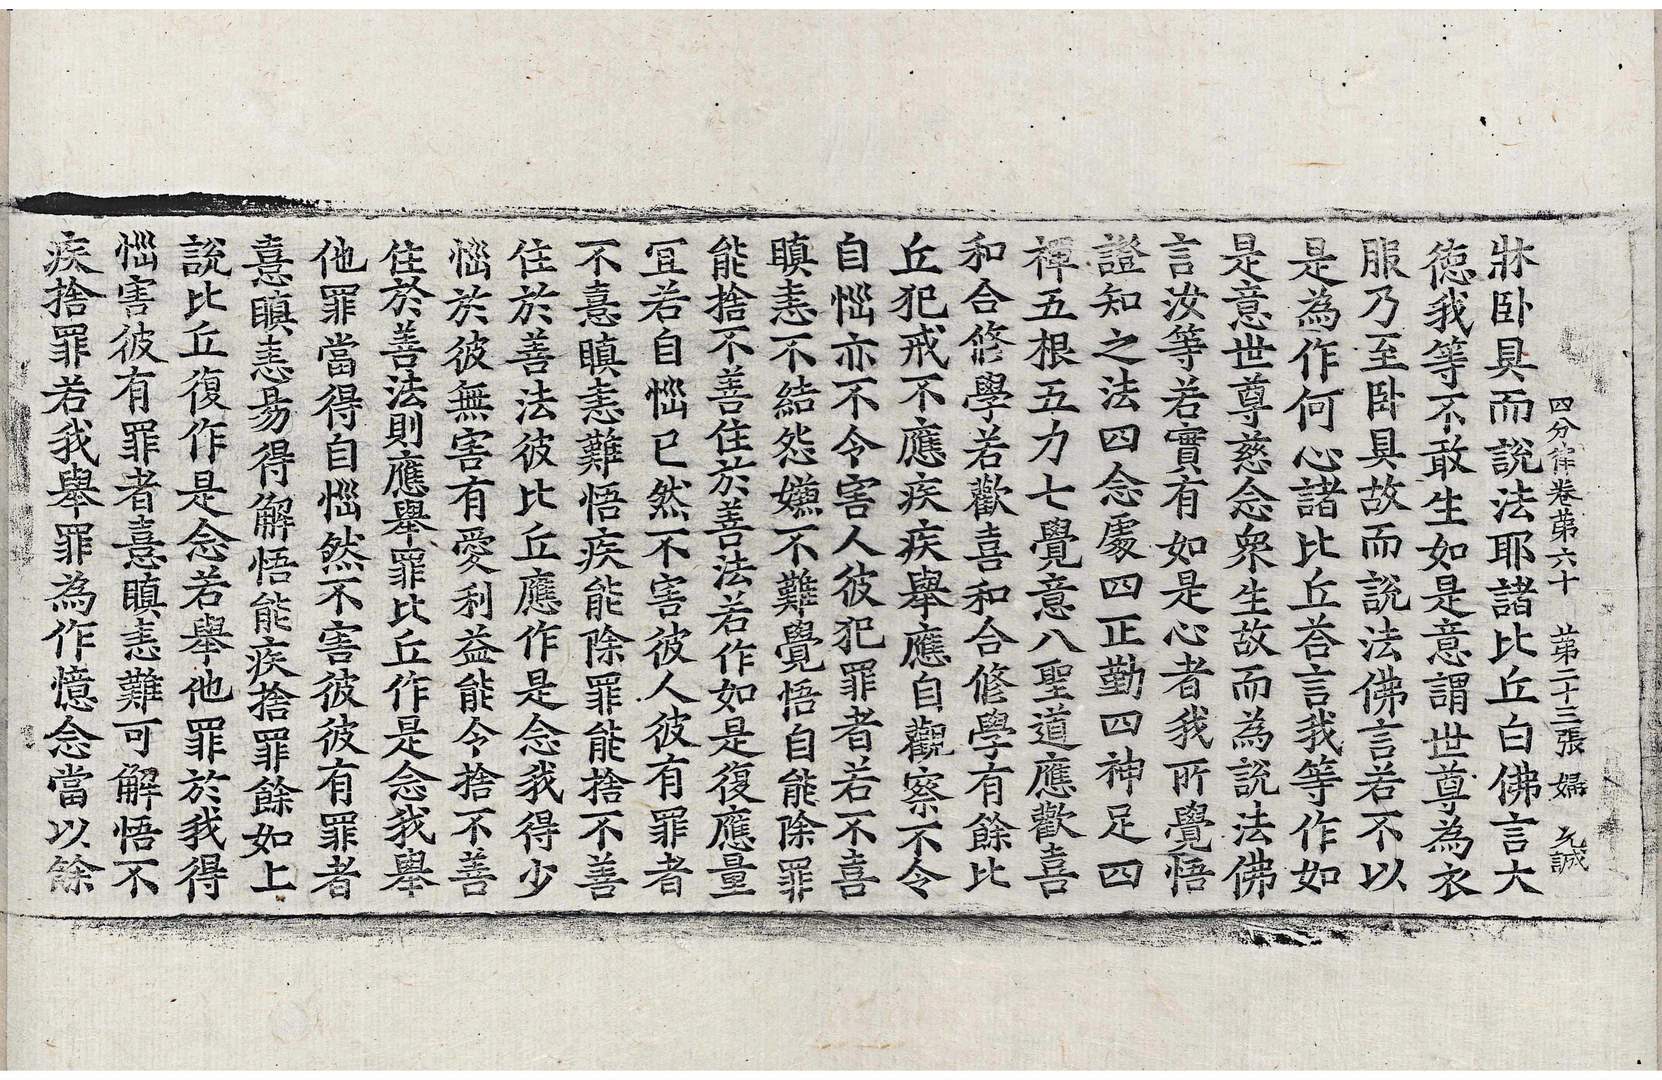 四分律卷第六十　第二十三張　婦　允誠
牀卧具而說法耶諸比丘白佛言大
德我等不敢生如是意謂世尊為衣
服乃至卧具故而說法佛言若不以
是為作何心諸比丘荅言我等作如
是意世尊慈念衆生故而為說法佛
言汝等若實有如是心者我所覺悟
證知之法四念處四正勤四神足四
禪五根五力七覺意八聖道應歡喜
和合修學若歡喜和合修學有餘比
丘犯戒不應疾疾舉應自觀察不令
自惱亦不令害人彼犯罪者若不喜
瞋恚不結怨嫌不難覺悟自能除罪
能捨不善住於善法若作如是復應量
冝若自惱已然不害彼人彼有罪者
不憙瞋恚難悟疾能除罪能捨不善
住於善法彼比丘應作是念我得少
惱於彼無害有愛利益能令捨不善
住於善法則應舉罪比丘作是念我舉
他罪當得自惱然不害彼彼有罪者
憙瞋恚昜得解悟能疾捨罪餘如上
說比丘復作是念若舉他罪於我得
惱害彼有罪者憙瞋恚難可解悟不
疾捨罪若我舉罪為作憶念當以餘